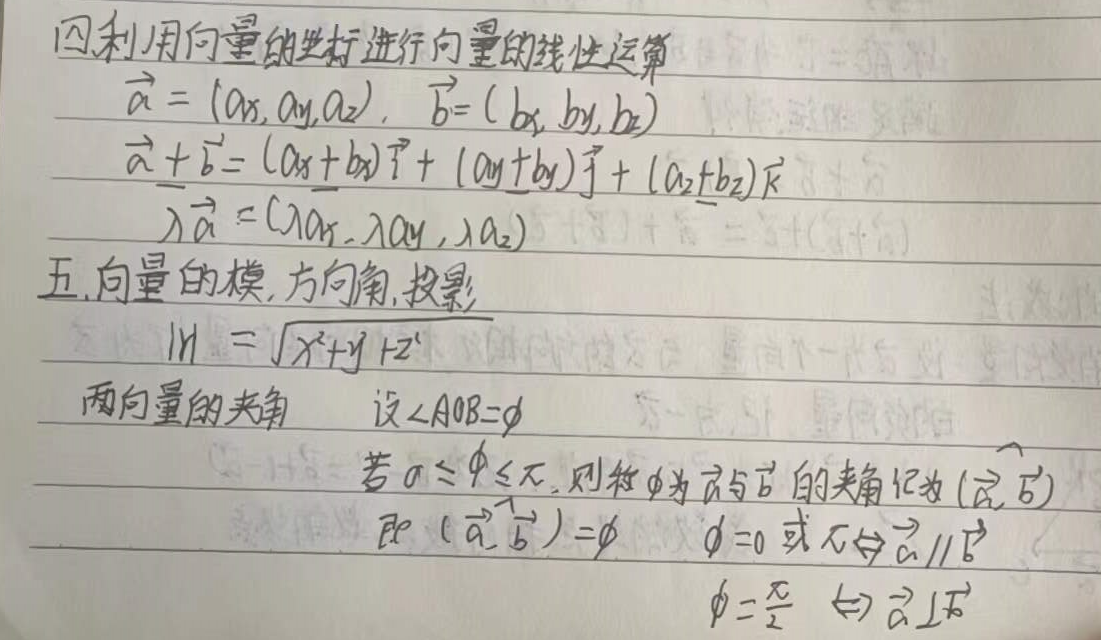 四利用向量的坐标进行向量的线性运算
a⃗ = (ax, ay, az). b⃗ = (bx, by, bz)
a⃗ + b⃗ = (ax + bx) i⃗ + (ay + by) j⃗ + (az + bz) k⃗
λa⃗ = (λax, λay, λaz)
五、向量的模, 方向角, 投影
|r| = √(x²+y²+z²)
两向量的夹角 设∠AOB=φ
若 0 ≤ φ ≤ π, 则称φ为a⃗与b⃗的夹角记为(a⃗, b⃗)
即 (a⃗, b⃗) = φ φ=0 或 π ⇔ a⃗ // b⃗
φ = π/2 ⇔ a⃗ ⊥ b⃗